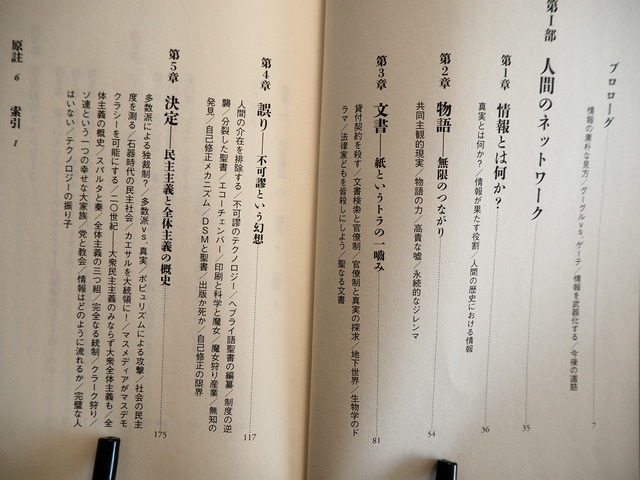 プロローグ
情報の素朴な見方／グーグルvs.ゲーテ／情報を武器化する／今後の道筋
7
第Ⅰ部 人間のネットワーク
35
第1章 情報とは何か？
36
真実とは何か？／情報が果たす役割／人間の歴史における情報
第2章 物語――無限のつながり
54
共同主観的現実／物語の力／高貴な嘘／永続的なジレンマ
第3章 文書――紙というトラの一嚙み
81
貸付契約を殺す／文書検索と官僚制／官僚制と真実の探求／地下世界／生物学のド
ラマ／法律家どもを皆殺しにしよう／聖なる文書
第4章 誤り――不可謬という幻想
117
人間の介在を排除する／不可謬のテクノロジー／ヘブライ語聖書の編纂／制度の逆
襲／分裂した聖書／エコーチェンバー／印刷と科学と魔女／魔女狩り産業／無知の
発見／自己修正メカニズム／DSMと聖書／出版か死か／自己修正の限界
第5章 決定――民主主義と全体主義の概史
175
多数派による独裁制？／多数派vs.真実／ポピュリズムによる攻撃／社会の民主
度を測る／石器時代の民主社会／カエサルを大統領に！／マスメディアがマスデモ
クラシーを可能にする／二〇世紀――大衆民主主義のみならず大衆全体主義も／全
体主義の概史／スパルタと秦／全体主義の三つ組／完全なる統制／クラーク狩り／
ソ連という一つの幸せな大家族／党と教会／情報はどのように流れるか／完璧な人
はいない／テクノロジーの振り子
原註 6 索引 1